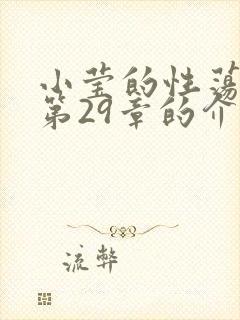 小莹的性荡
第29章的介
流弊